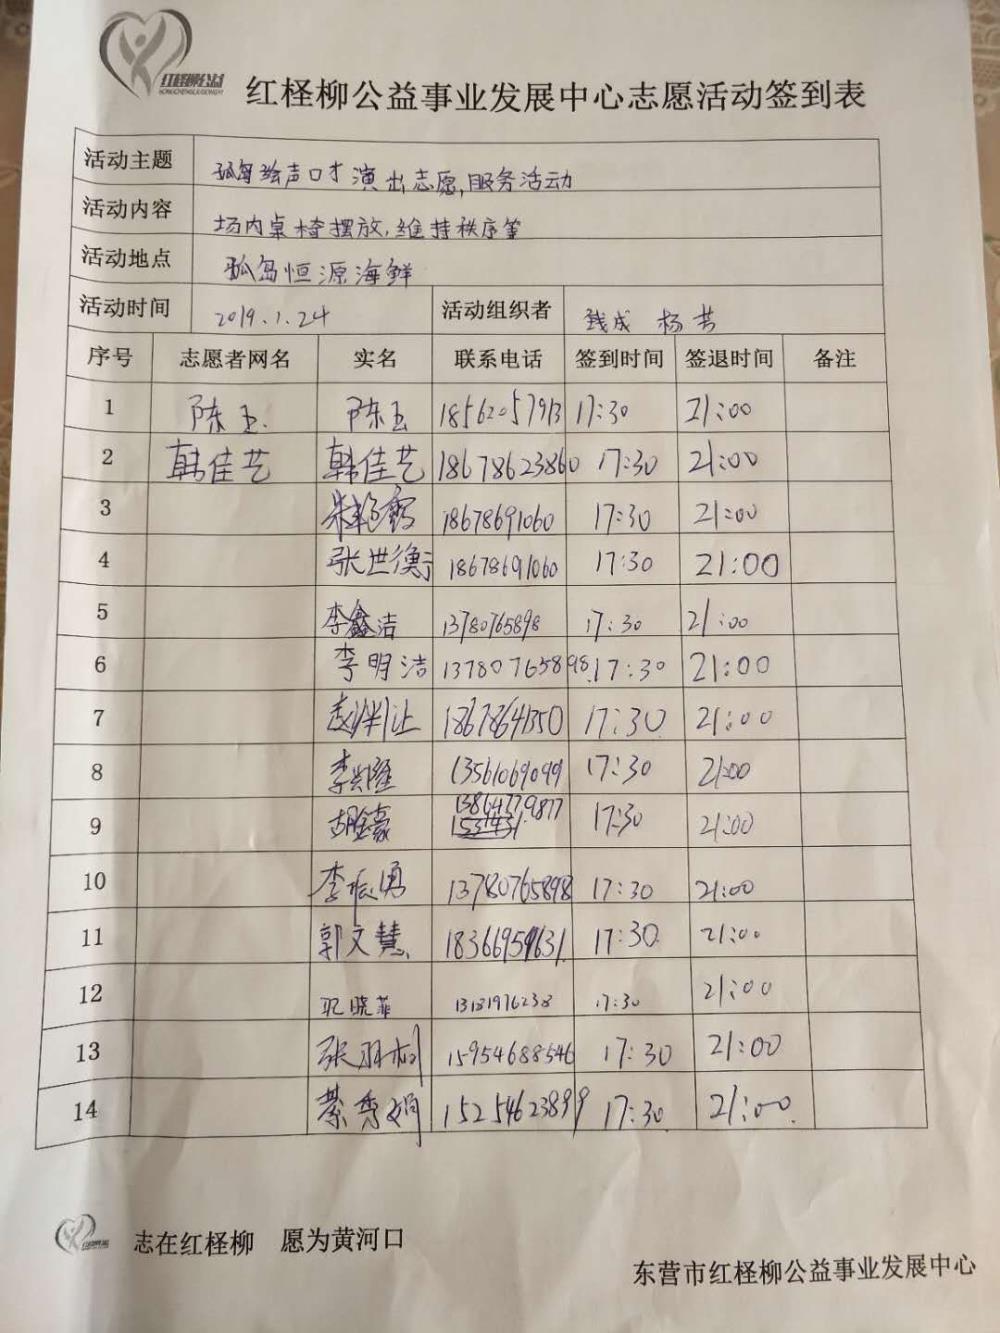 红柽柳公益
HONGCHENGLIUGONGYI
红柽柳公益事业发展中心志愿活动签到表
活动主题 孤岛绘声口才演出志愿服务活动
活动内容 场内桌椅摆放,维持秩序等
活动地点 孤岛恒源海鲜
活动时间 2019.1.24 活动组织者 钱成 杨芳
序号 志愿者网名 实名 联系电话 签到时间 签退时间 备注
1 陈玉 陈玉 18562057913 17:30 21:00
2 韩佳艺 韩佳艺 18678623860 17:30 21:00
3 18678691060 17:30 21:00
4 张世衡 18678691060 17:30 21:00
5 李鑫洁 13780765898 17:30 21:00
6 李明洁 13780765898 17:30 21:00
7 18678641350 17:30 21:00
8 李兴隆 13561069099 17:30 21:00
9 胡金豪 13864779877 17:30 21:00
10 李振勇 13780765898 17:30 21:00
11 郭文慧 18366959631 17:30 21:00
12 晓菲 13181976238 17:30 21:00
13 张羽桐 15954688546 17:30 21:00
14 綦秀娟 15254623899 17:30 21:00
志在红柽柳 愿为黄河口
东营市红柽柳公益事业发展中心